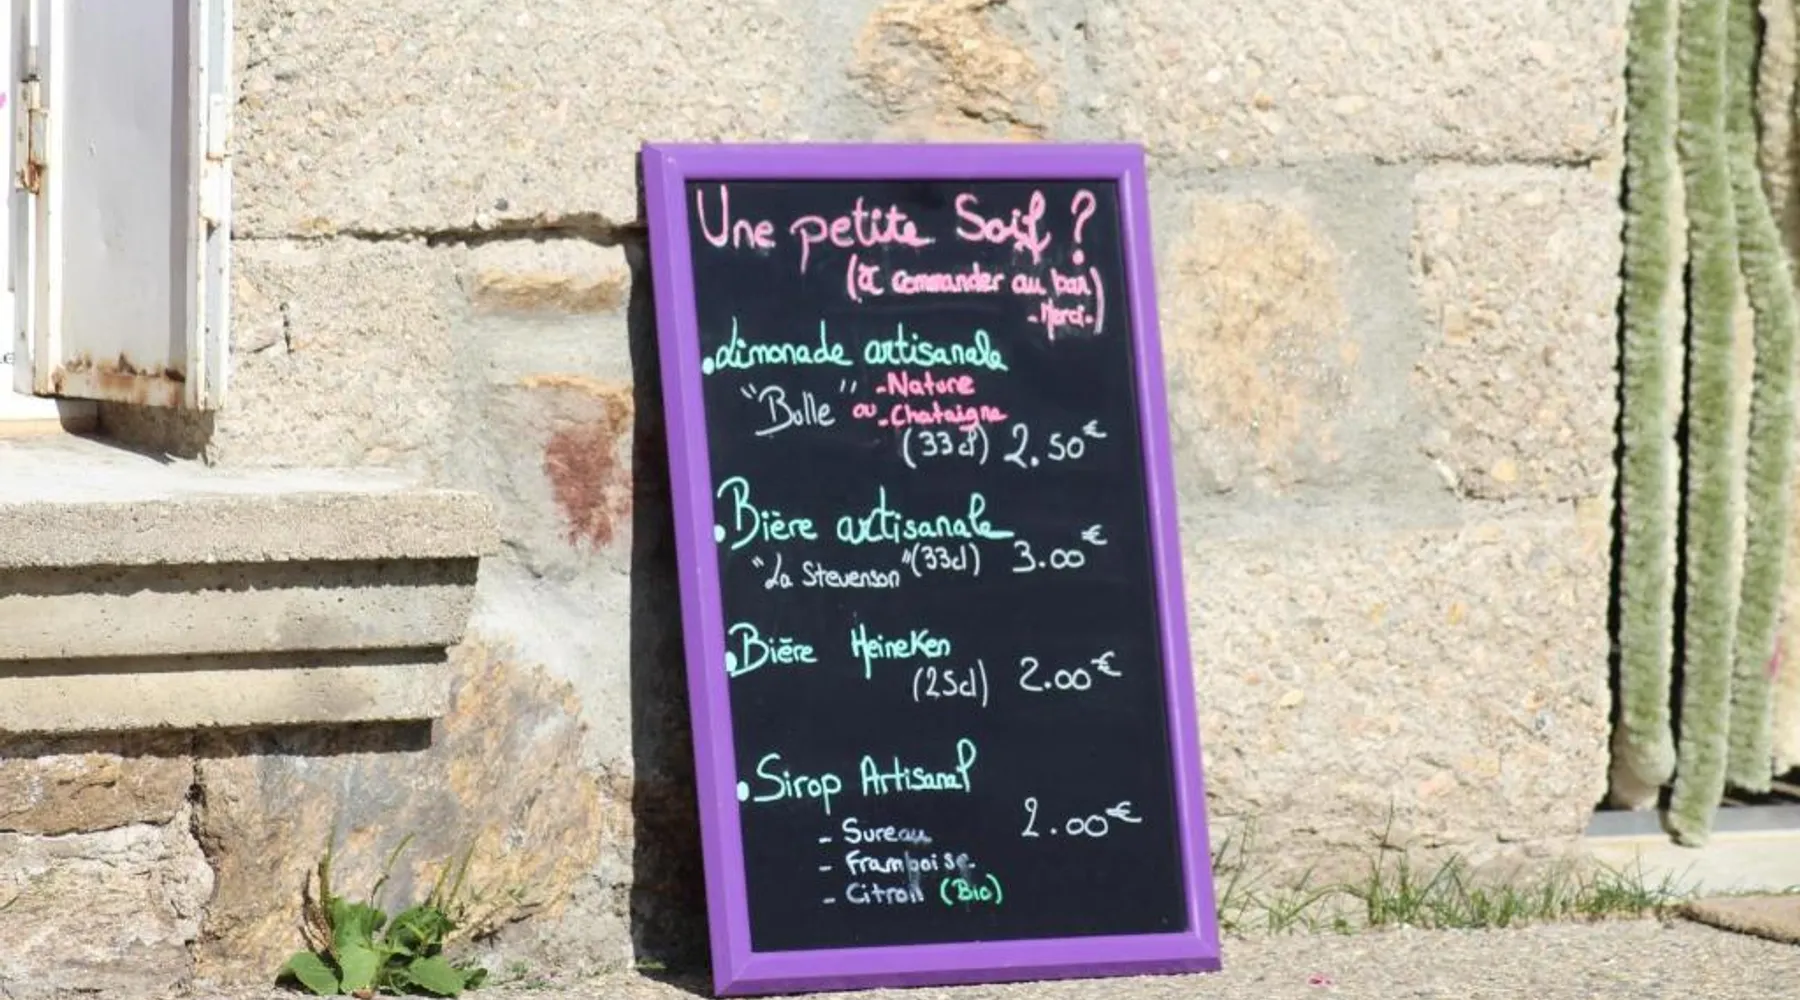 Une petite Soif ?
(à commander au bar)
- Merci -
• Limonade artisanale
"Bulle" - Nature
ou - Chataigne
(33cl) 2.50€
• Bière artisanale
"La Stevenson" (33cl) 3.00€
• Bière Heineken
(25cl) 2.00€
• Sirop Artisanal
- Sureau 2.00€
- Framboise
- Citron (Bio)